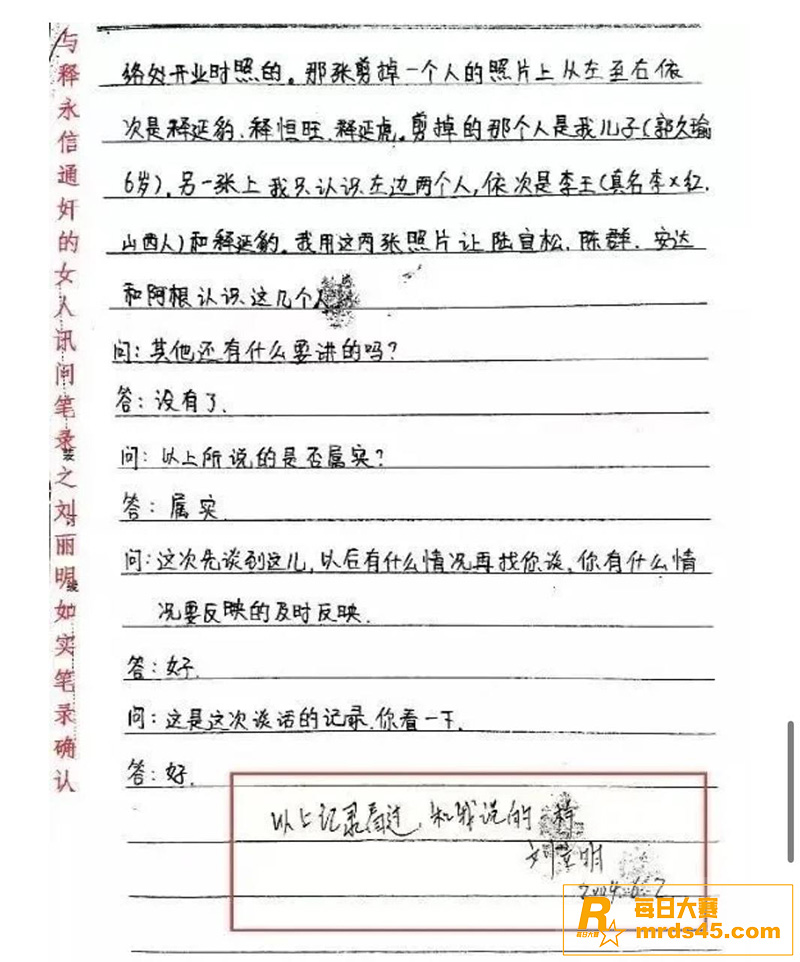 与释永信通奸的女人讯问笔录之刘丽明如实笔录确认
络处开业时照的。那张剪掉一个人的照片上从左至右依
次是释延豹、释恒旺、释延虎。剪掉的那个人是我儿子(郭久瑜
6岁)。另一张上我只认识左边两个人,依次是李王(真名李X红,
山西人)和释延豹。我用这两张照片让陆宜松、陈群、安达
和阿根认识这几个人
问:其他还有什么要讲的吗?
答:没有了.
问:以上所说的是否属实?
答:属实.
问:这次先谈到这儿,以后有什么情况再找你谈,你有什么情
况要反映的及时反映.
答:好.
问:这是这次谈话的记录.你看一下.
答:好.
以上记录看过,和我说的 样
刘 明
2004.6.2
每日大赛
R
每日大赛
mrds45.com